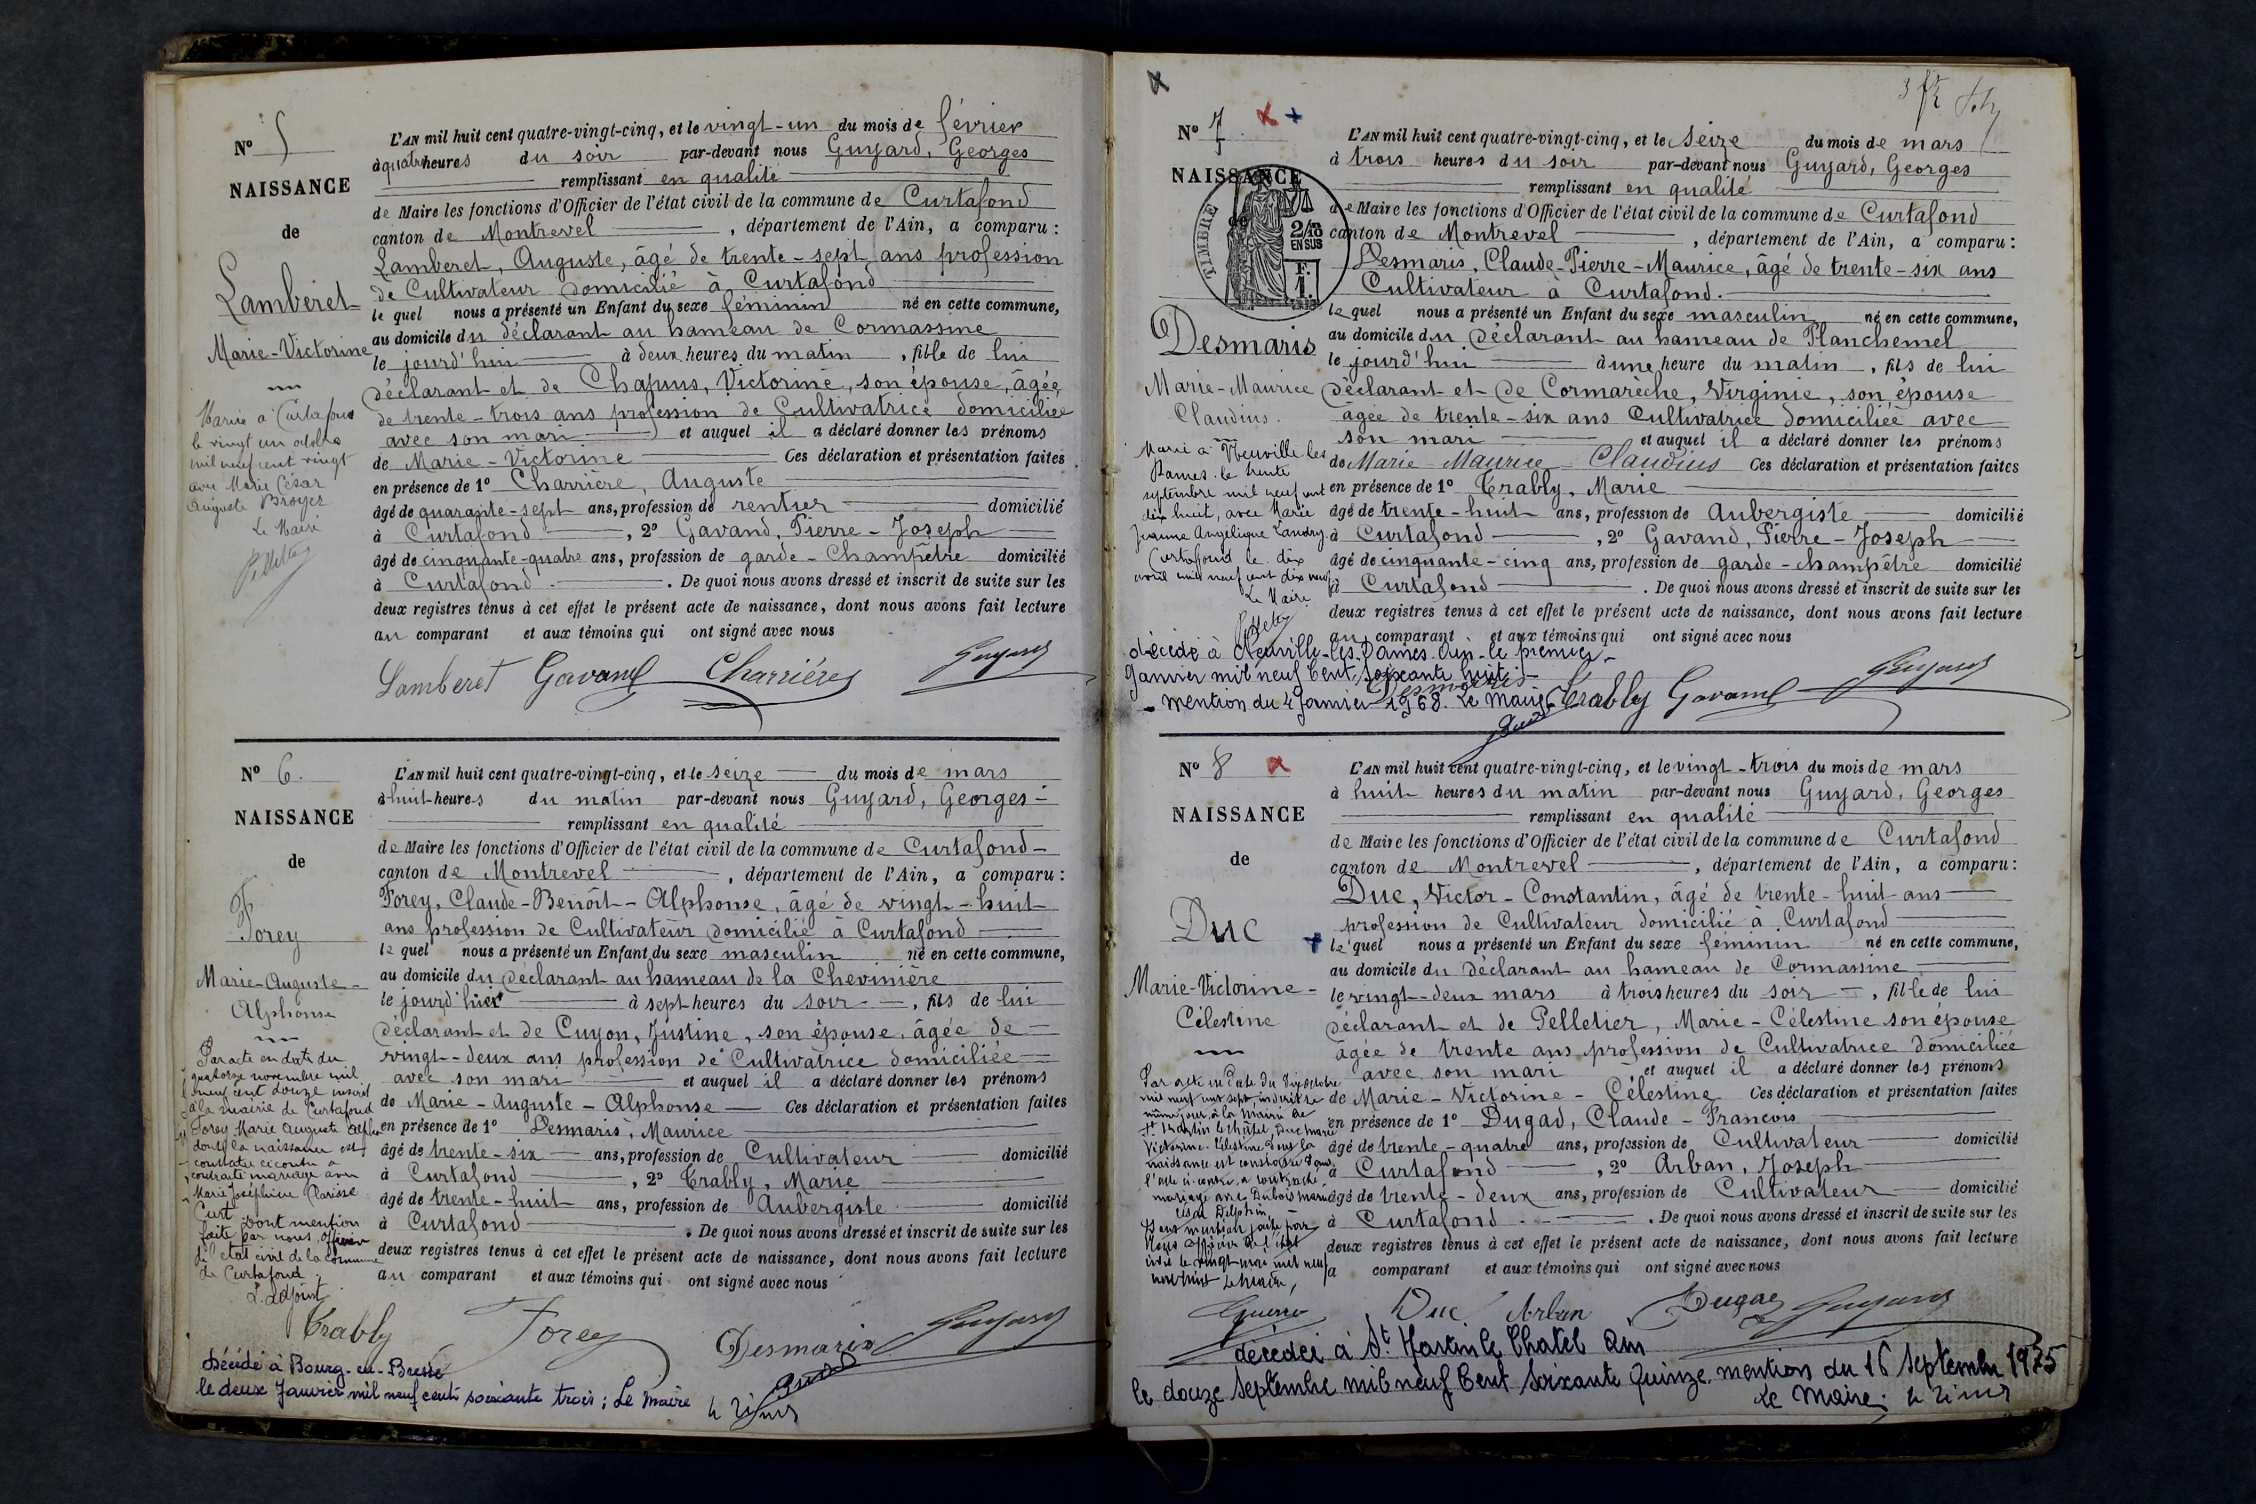 N° 5
NAISSANCE
de
Lamberet
Marie-Victorine
Marié à Curtafond
le vingt un octobre
mil neuf cent vingt
avec Marie César
Auguste Broyer
Le Maire
L'AN mil huit cent quatre-vingt-cinq, et le vingt-un du mois de février
à quatre heures du soir par-devant nous Guyard, Georges
remplissant en qualité
de Maire les fonctions d'Officier de l'état civil de la commune de Curtafond
canton de Montrevel, département de l'Ain, a comparu :
Lamberet, Auguste, âgé de trente-sept ans profession
de Cultivateur domicilié à Curtafond
le quel nous a présenté un Enfant du sexe féminin né en cette commune,
au domicile du déclarant au hameau de Cormassine
le jourd'hui à deux heures du matin, fille de lui
déclarant et de Chapuis, Victorine, son épouse, âgée
de trente-trois ans profession de Cultivatrice domiciliée
avec son mari et auquel il a déclaré donner les prénoms
de Marie-Victorine Ces déclaration et présentation faites
en présence de 1° Charrière, Auguste
âgé de quarante-sept ans, profession de rentier domicilié
à Curtafond, 2° Gavand, Pierre-Joseph
âgé de cinquante-quatre ans, profession de garde-champêtre domicilié
à Curtafond. De quoi nous avons dressé et inscrit de suite sur les
deux registres tenus à cet effet le présent acte de naissance, dont nous avons fait lecture
au comparant et aux témoins qui ont signé avec nous
Lamberet Gavand Charriéres Guyard
N° 6.
NAISSANCE
de
Forey
Marie-Auguste-
Alphonse
Par acte en date du
quatorze novembre mil
neuf cent douze inscrit
à la mairie de Curtafond
Forey Marie Auguste Alph
dont la naissance est
constatée ci contre a
contracté mariage avec
Marie Joséphine Clarisse
Curt Dont mention
faite par nous, officier
de l'état civil de la commune
de Curtafond
L'adjoint
L'AN mil huit cent quatre-vingt-cinq, et le seize du mois de mars
à huit heures du matin par-devant nous Guyard, Georges
remplissant en qualité
de Maire les fonctions d'Officier de l'état civil de la commune de Curtafond
canton de Montrevel, département de l'Ain, a comparu :
Forey, Claude-Benoît-Alphonse, âgé de vingt-huit
ans profession de Cultivateur domicilié à Curtafond
le quel nous a présenté un Enfant du sexe masculin né en cette commune,
au domicile du déclarant au hameau de la Chevinière
le jourd'hier à sept heures du soir, fils de lui
déclarant et de Cuyon, Justine, son épouse, âgée de
vingt-deux ans profession de Cultivatrice domiciliée
avec son mari et auquel il a déclaré donner les prénoms
de Marie-Auguste-Alphonse Ces déclaration et présentation faites
en présence de 1° Desmaris, Maurice
âgé de trente-six ans, profession de Cultivateur domicilié
à Curtafond, 2° Trably, Marie
âgé de trente-huit ans, profession de Aubergiste domicilié
à Curtafond. De quoi nous avons dressé et inscrit de suite sur les
deux registres tenus à cet effet le présent acte de naissance, dont nous avons fait lecture
au comparant et aux témoins qui ont signé avec nous
Trably Forey Desmaris Guyard
Décédé à Bourg-en-Bresse
le deux Janvier mil neuf cent soixante trois ; Le Maire
N° 7.
NAISSANCE
de
TIMBRE
2/10
EN SUS
F.
1.
Desmaris
Marie-Maurice
Claudius.
Marié à Neuville les
Dames le trente
septembre mil neuf cent
dix huit, avec Marie
Jeanne Angélique Landry.
Curtafond le dix
avril mil neuf cent dix neuf
Le Maire
L'AN mil huit cent quatre-vingt-cinq, et le seize du mois de mars
à trois heures du soir par-devant nous Guyard, Georges
remplissant en qualité
de Maire les fonctions d'Officier de l'état civil de la commune de Curtafond
canton de Montrevel, département de l'Ain, a comparu :
Desmaris, Claude-Pierre-Maurice, âgé de trente-six ans
Cultivateur à Curtafond.
le quel nous a présenté un Enfant du sexe masculin né en cette commune,
au domicile du déclarant au hameau de Planchemel
le jourd'hui à une heure du matin, fils de lui
déclarant et de Cormarèche, Virginie, son épouse
agée de trente-six ans Cultivatrice domiciliée avec
son mari et auquel il a déclaré donner les prénoms
de Marie-Maurice-Claudius Ces déclaration et présentation faites
en présence de 1° Trably, Marie
âgé de trente-huit ans, profession de Aubergiste domicilié
à Curtafond, 2° Gavand, Pierre-Joseph
âgé de cinquante-cinq ans, profession de garde-champêtre domicilié
à Curtafond. De quoi nous avons dressé et inscrit de suite sur les
deux registres tenus à cet effet le présent acte de naissance, dont nous avons fait lecture
au comparant et aux témoins qui ont signé avec nous
décédé à Neuville-les-Dames. Ain. le premier
Janvier mil neuf Cent Soixante huit.
Mention du 4 Janvier 1968. Le Maire
Desmaris Trably Gavand Guyard
N° 8
NAISSANCE
de
Duc
Marie-Victorine-
Célestine
Par acte en date du dix octobre
mil neuf cent sept, inscrit le
même jour, à la Mairie de
St Martin le Châtel, Duc Marie
Victorine Célestine dont la
naissance est constatée dans
l'acte ci-contre, a contracté
mariage avec Dubois Marie
César Delphin
Dont mention faite par
Nous officier de l'état
civil le vingt-mai mil neuf
cent huit Le Maire,
L'AN mil huit cent quatre-vingt-cinq, et le vingt-trois du mois de mars
à huit heures du matin par-devant nous Guyard, Georges
remplissant en qualité
de Maire les fonctions d'Officier de l'état civil de la commune de Curtafond
canton de Montrevel, département de l'Ain, a comparu :
Duc, Victor-Constantin, âgé de trente-huit ans
profession de Cultivateur domicilié à Curtafond
le quel nous a présenté un Enfant du sexe féminin né en cette commune,
au domicile du déclarant au hameau de Cormassine
le vingt-deux mars à trois heures du soir, fille de lui
déclarant et de Pelletier, Marie-Célestine son épouse
agée de trente ans profession de Cultivatrice domiciliée
avec son mari et auquel il a déclaré donner les prénoms
de Marie-Victorine-Célestine Ces déclaration et présentation faites
en présence de 1° Dugad, Claude-François
âgé de trente-quatre ans, profession de Cultivateur domicilié
à Curtafond, 2° Arban, Joseph
âgé de trente-deux ans, profession de Cultivateur domicilié
à Curtafond. De quoi nous avons dressé et inscrit de suite sur les
deux registres tenus à cet effet le présent acte de naissance, dont nous avons fait lecture
a comparant et aux témoins qui ont signé avec nous
Duc Arban Dugad Guyard
décédée à St Martin le Chatel Ain
le douze Septembre mil neuf Cent Soixante Quinze. mention du 16 Septembre 1975
Le Maire.